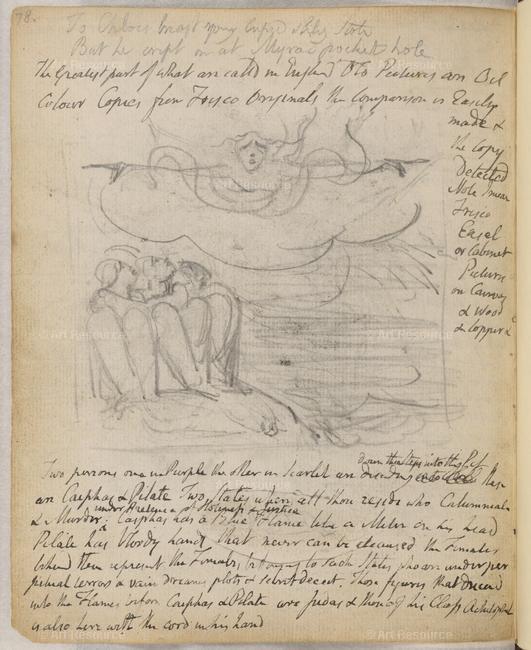 78.
To Chloes breast young Cupid slily stole
But he crept in at Myras pocket hole
The Greatest part of what are calld in England Old Pictures are Oil
Colour Copies from Fresco Originals the Comparison is Easily
made &
the Copy
Detected
Note I mean
Fresco
Easel
or Cabinet
Pictures
on Canvas
& Wood
& Copper &
down the Steps into the Pit
Two persons one in Purple the other in Scarlet are descending these
are Caiphas & Pilate Two States where all those reside who Calumniate
under Pretence of Holiness & Justice
& Murder Caiphas has a Blue Flame like a Miter on his head
Pilate has bloody hands that never can be cleansed the Females
behind them represent the Females belonging to such States who are under per
petual terrors & vain dreams plots & secret deceit. Those figures that descend
into the Flames before Caiphas & Pilate are Judas & those of his Class Achitophel
is also here with the cord in his hand
© Art Resource